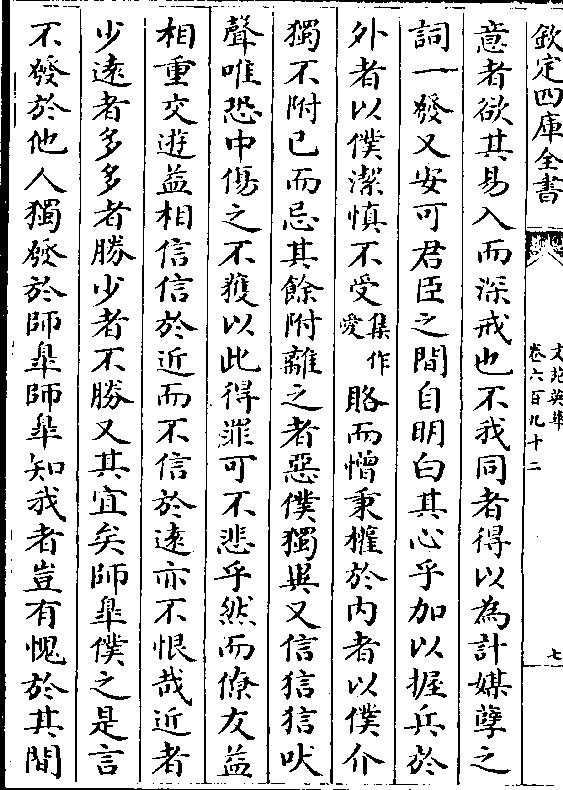 欽定四庫全書
文苑英華
卷六百九十二
七
意者欲其易入而深戒也不我同者得以為計媒孽之
詞一發又安可君臣之間自明白其心乎加以握兵於
外者以僕潔慎不受集作愛賂而憎秉權於内者以僕介
獨不附已而忌其餘附離之者惡僕獨異又信狺狺吠
聲唯恐中傷之不獲以此得罪可不悲乎然而僚友益
相重交遊益相信信於近而不信於遠亦不恨哉近者
少遠者多多者勝少者不勝又其宜矣師臯僕之是言
不發於他人獨發於師臯師臯知我者豈有愧於其間